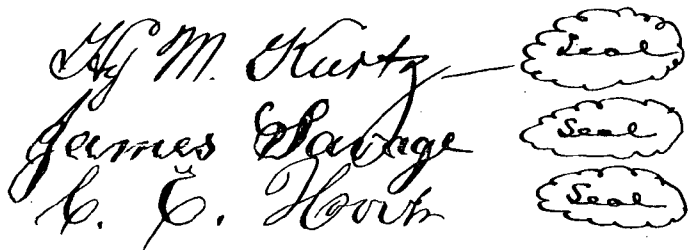 Hy M. Kurtz Seal
James Savage Seal
C. C. Seal